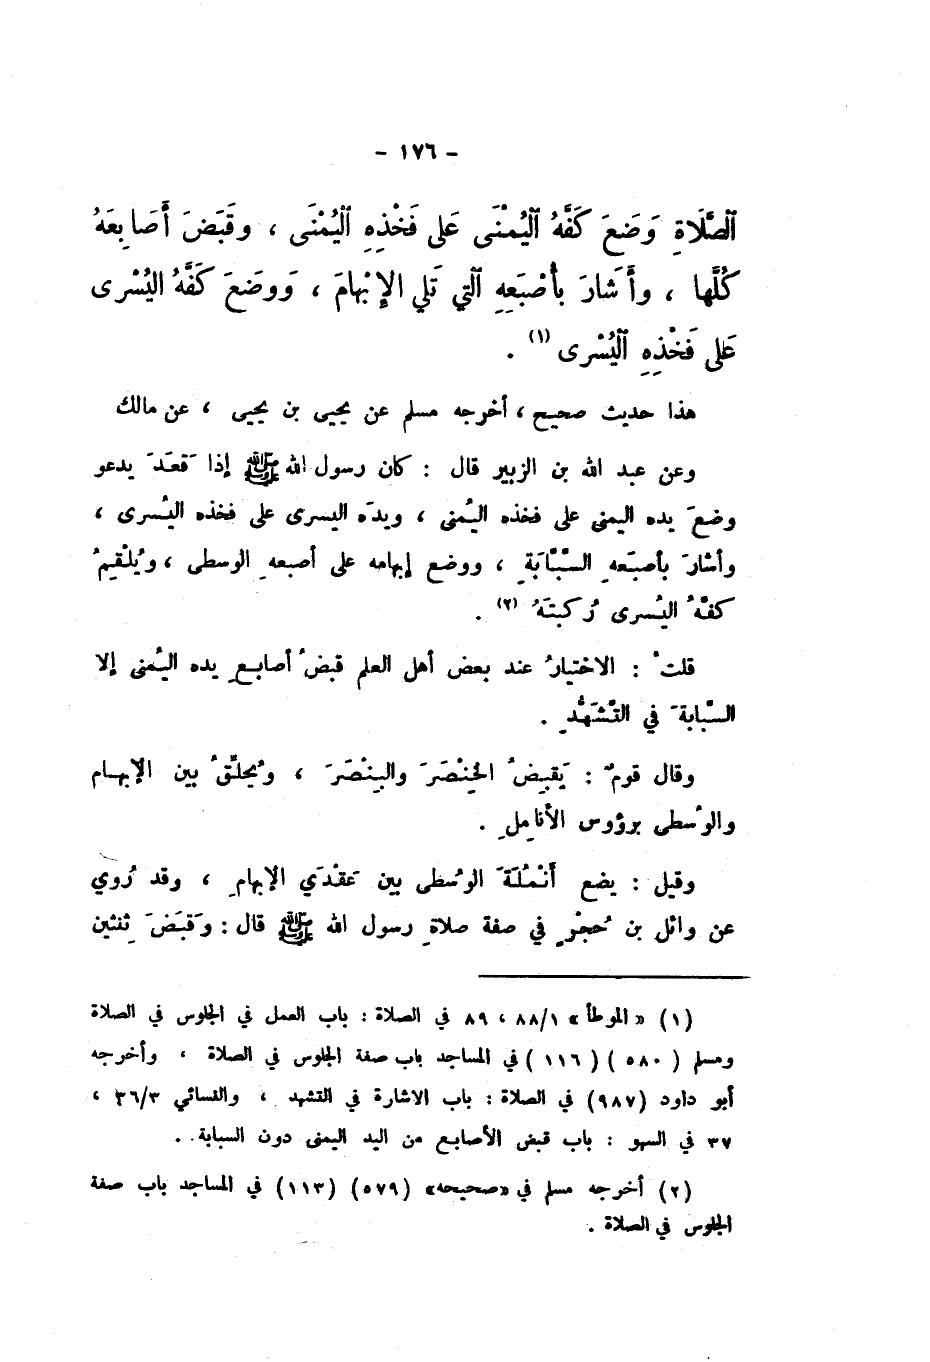 - ١٧٦ -
ٱلصَّلَاةِ وَضَعَ كَفَّهُ ٱليُمْنَى عَلى فَخْذِهِ ٱليُمْنَى ، وقَبَضَ أَصَابِعَهُ
كُلَّها ، وأَشارَ بأُصْبَعِهِ ٱلتي تَلي الإِبْهامَ ، وَوضَعَ كَفَّهُ اليُسْرى
عَلى فَخْذِهِ ٱليُسْرى (١) .
هذا حديث صحيح ، أخرجه مسلم عن يحيى بن يحيى ، عن مالك
وعن عبد الله بن الزبير قال : كان رسول الله ﷺ إذا قعَدَ يدعو
وضعَ يده اليمنى على فخذه اليُمنى ، ويدَه اليسرى على فخذه اليُسرى ،
وأشارَ بأصبَعه السَّبَّابَةِ ، ووضع إبهامه على أصبعهِ الوسطى ، ويُلْقِيمُ
كفَّهُ اليُسرى رُكبتَهُ (٢) .
قلتُ : الاختيارُ عند بعض أهل العلم قبضُ أصابعِ يده اليُمنى إلا
السَّبابةَ في التَّشَهُّدِ .
وقال قومٌ : يَقبِضُ الخِنْصَرَ والبِنْصَرَ ، ويُحلِّقُ بين الإبهام
والوُسطى برؤوس الأنامِلِ .
وقيل : يضع أَنْمُلَةَ الوُسطى بين عَقْدَي الإبهامِ ، وقد رُوي
عن وائل بن حُجْرٍ في صفة صلاةِ رسول الله ﷺ قال : وقَبَضَ ثِنتين
(١) «الموطأ» ٨٨/١ ، ٨٩ في الصلاة : باب العمل في الجلوس في الصلاة
ومسلم ( ٥٨٠ ) ( ١١٦ ) في المساجد باب صفة الجلوس في الصلاة ، وأخرجه
أبو داود (٩٨٧) في الصلاة : باب الاشارة في التشهد ، والنسائي ٣٦/٣ ،
٣٧ في السهو : باب قبض الأصابع من اليد اليمنى دون السبابة .
(٢) أخرجه مسلم في «صحيحه» (٥٧٩) (١١٣) في المساجد باب صفة
الجلوس في الصلاة .